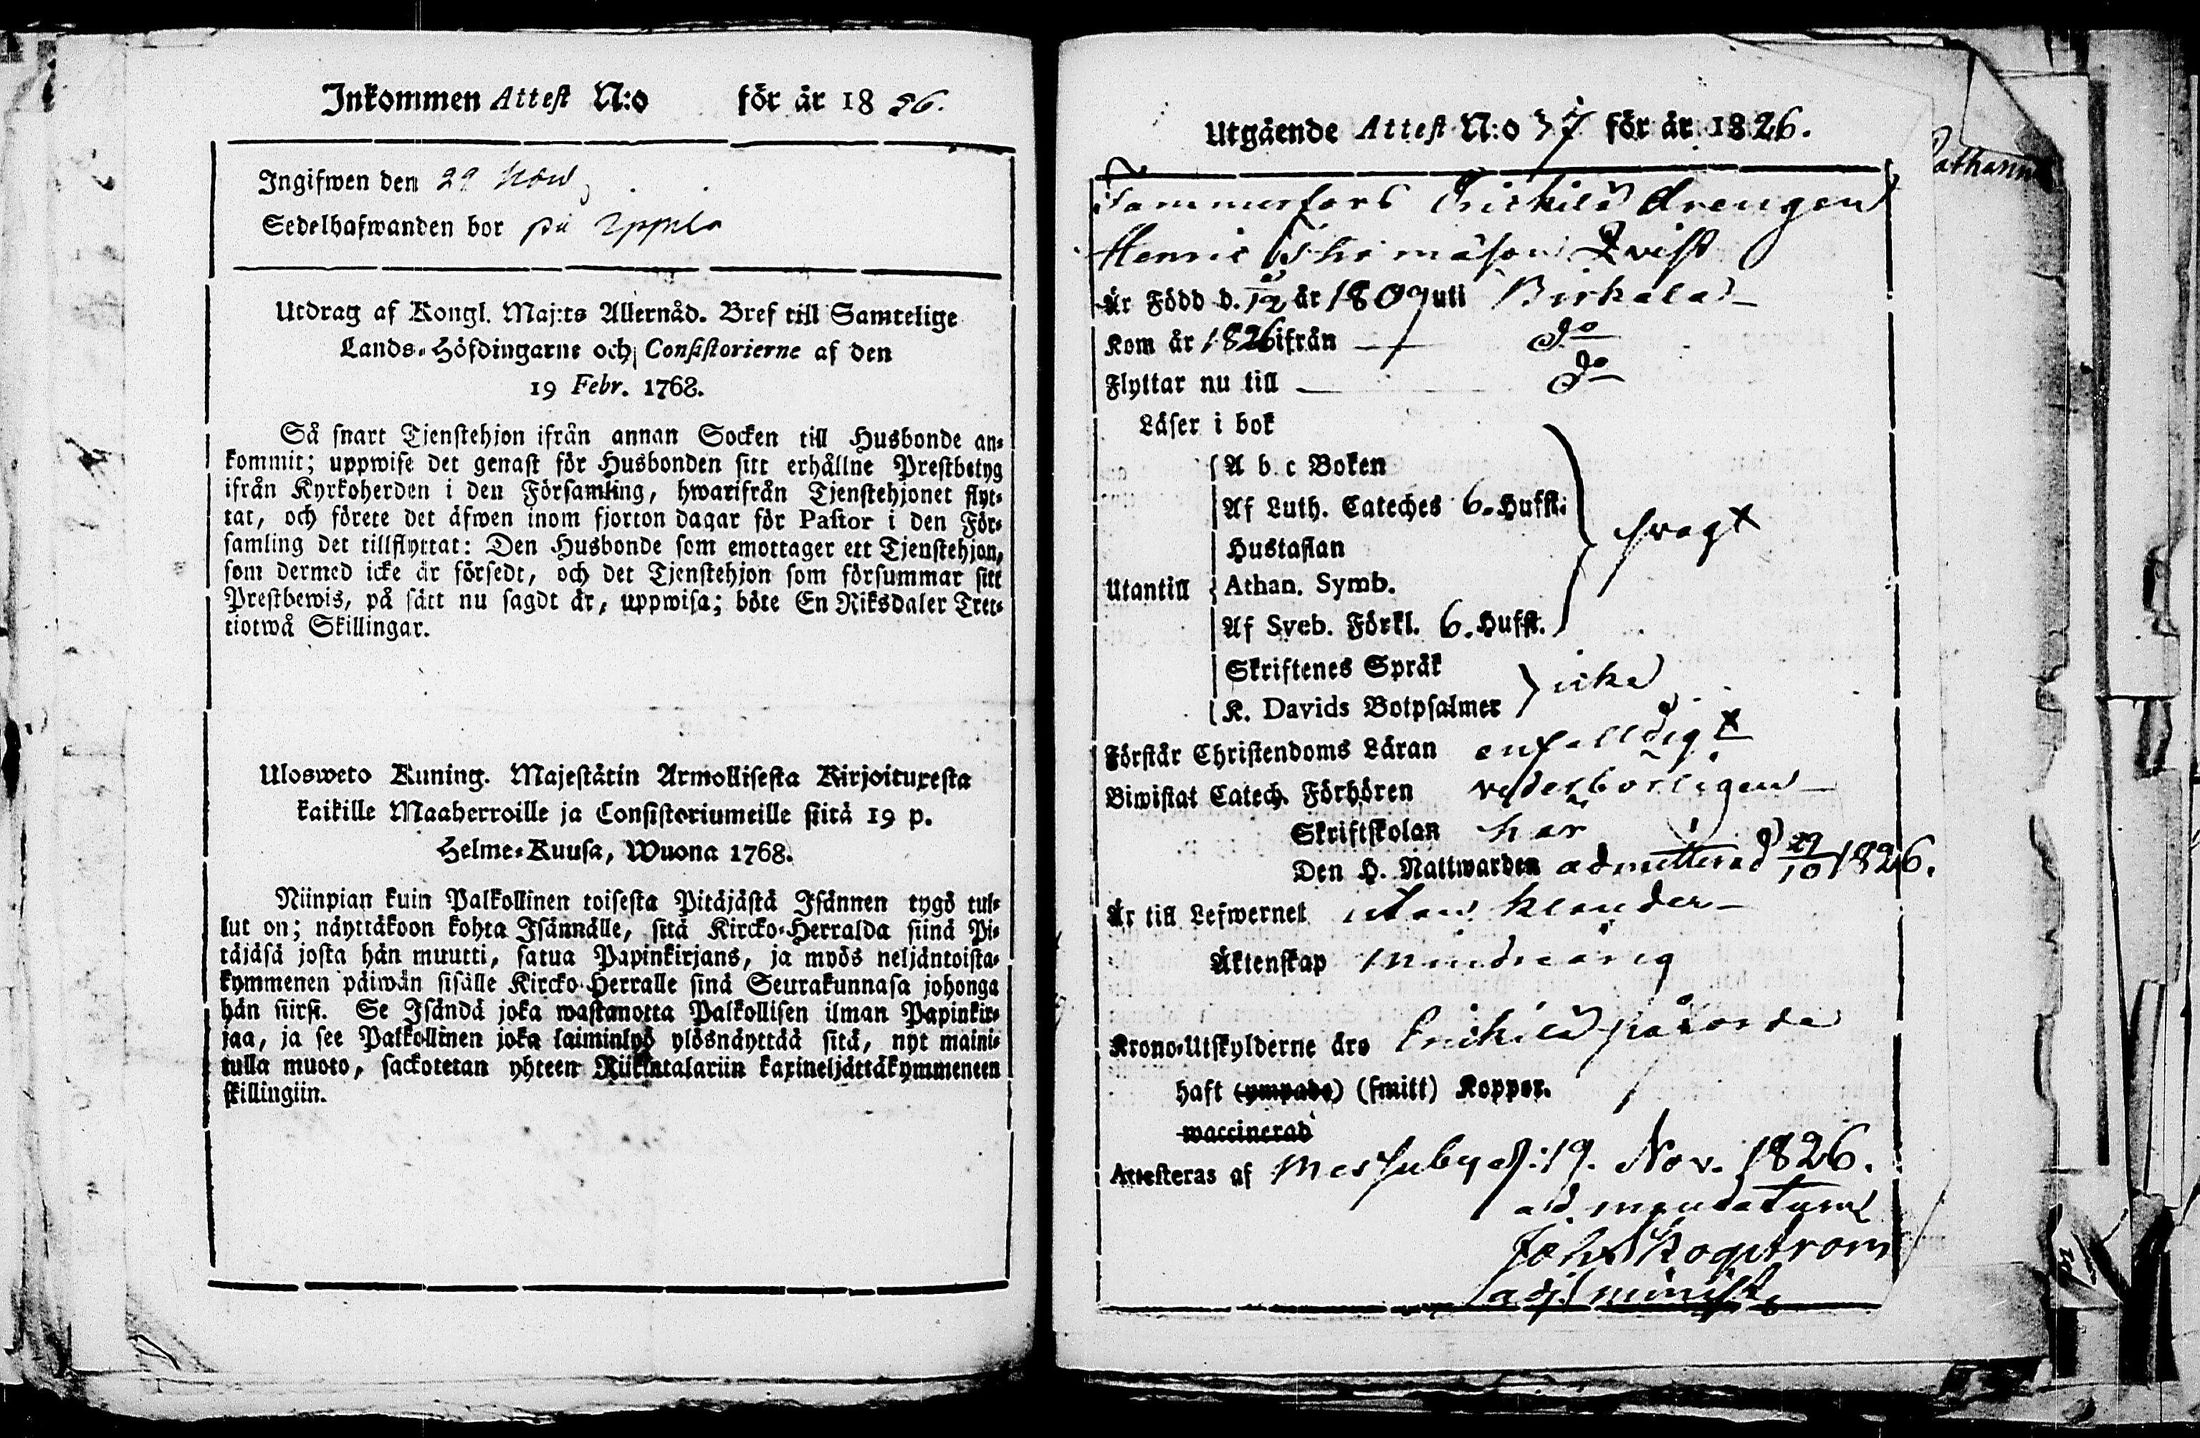 Inkommen Attest N:o för år 1826.
Ingifwen den 29 Nov
Sedelhafwanden bor på
Utdrag af Kongl. Maj:ts Allernåd. Bref till Samtelige
Lands-Höfdingarne och Consistorierne af den
19 Febr. 1768.
Så snart Tjenstehjon ifrån annan Socken till Husbonde an-
kommit; uppwise det genast för Husbonden sitt erhållne Prestbetyg
ifrån Kyrkoherden i den Församling, hwarifrån Tjenstehjonet flyt-
tat, och förete det äfwen inom fjorton dagar för Pastor i den För-
samling det tillflyttat: Den Husbonde som emottager ett Tjenstehjon,
som dermed icke är försedt, och det Tjenstehjon som försummar sitt
Prestbewis, på sätt nu sagdt är, uppwisa; böte En Riksdaler Tret-
tiotwå Skillingar.
Ulosweto Kuning. Majestätin Armollisesta Kirjoituxesta
kaikille Maaherroille ja Consistoriumeille siitä 19 p.
Helme-Kuusa, Wuona 1768.
Niinpian kuin Palkollinen toisesta Pitäjästä Isännen tygö tul-
lut on; näyttäkoon kohta Isännälle, sitä Kircko-Herralda siinä Pi-
täjäsä josta hän muutti, satua Papinkirjans, ja myös neljäntoista-
kymmenen päiwän sisälle Kircko-Herralle sinä Seurakunnasa johonga
hän siirsi. Se Isändä joka wastanotta Palkollisen ilman Papinkir-
jaa, ja see Palkollinen joka laiminlyö ylösnäyttää sitä, nyt maini-
tulla muoto, sackotetan yhteen Riikintalariin kaxineljättäkymmeneen
skillingiin.
Utgående Attest N:o 37 för år 1826.
Tammerfors Erichilä drengen
Henric Thomasson Qvist
Är Född d. /12 år 1809 uti Birkala
Kom år 1826 ifrån — do
Flyttar nu till — do
Läser i bok
A b c Boken
Af Luth. Cateches 6. Hufst.
Hustaflan
svagt
Utantill Athan. Symb.
Af Sveb. Förkl. 6. Hufst.
Skriftenes Språk
icke
K. Davids Botpsalmer
Förstår Christendoms Läran enfalldigt
Biwistat Catech. Förhören vederbörligen
Skriftskolan har
Den H. Nattwarden admitterad 29/10 1826.
Är till Lefwernet utan klander
Äktenskap minderårig
Krono-Utskylderne äro Erichilä påförde
haft (ympade) (smitt) Koppor.
waccinerad
Attesteras af Messuby d. 19. Nov. 1826.
ad mandatum
Joh. Skogström
adj. minist.